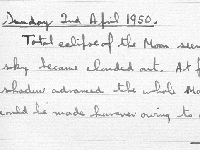 Sunday 2nd April 1950.
Total eclipse of the Moon seen
sky became clouded out. At f
shadow advanced the whole Mo
could be made however owing to